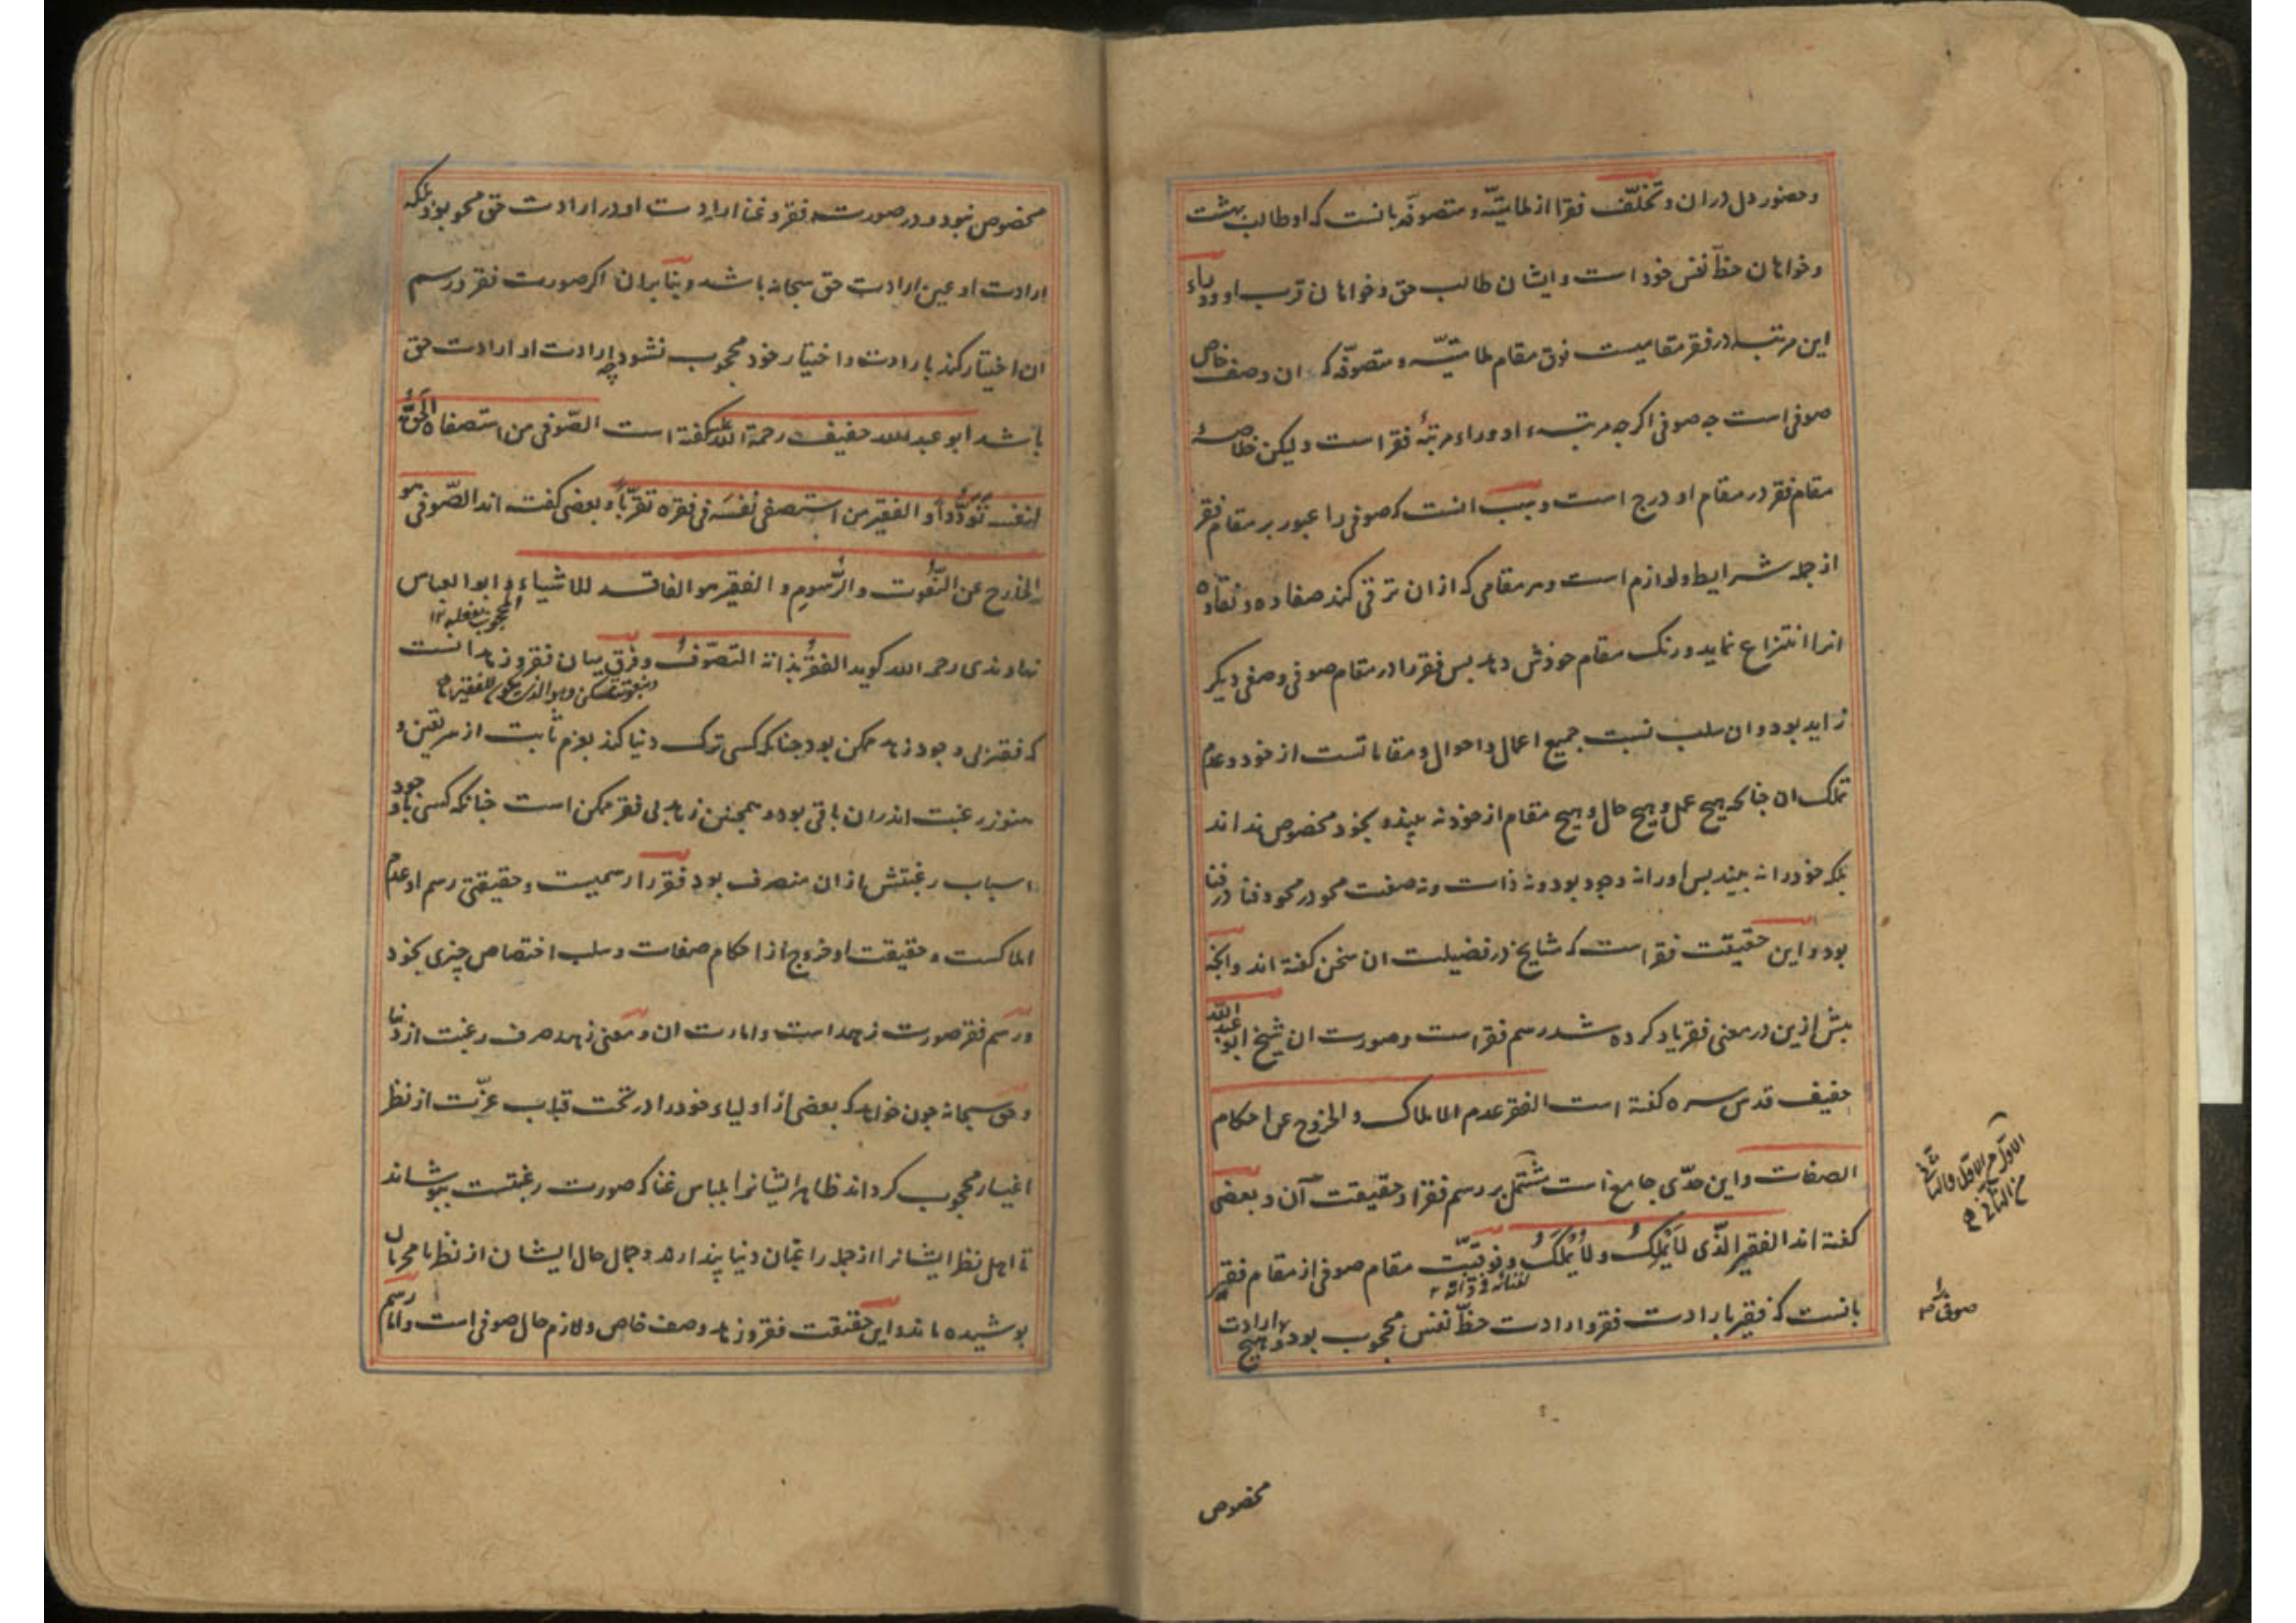 وحضور دل دران و تخلّف فقرا از ملامتیّه و متصوّفه بانست که او طالب بهشت
وخواهان حظّ نفس خود است و ایشان طالب حق و خواهان قرب او ووراء
این مرتبه در فقر مقامیست فوق مقام ملامتیّه و متصوّفه که ان وصف خاص
صوفی است چه صوفی اکرچه مرتبهٔ او وراء مرتبهٔ فقر است ولیکن خلاصهٔ
مقام فقر در مقام او درج است وسبب انست که صوفی را عبور بر مقام فقر
از جمله شرایط ولوازم است وهر مقامی که ازان ترقی کند صفاوه ونقاوه
انرا انتزاع نماید ورنک مقام خودش دهد بس فقر را در مقام صوفی وصفی دیکر
زاید بود وان سلب نسبت جمیع اعمال واحوال ومقاماتست از خود وعدم
تملک ان چنانکه هیچ عمل وهیچ حال وهیچ مقام از خود نه بیند و بخود مخصوص نداند
بلکه خود را نه بیند بس اورا نه وجود بود ونه ذات ونه صفت محو در محو وفنا در فنا
بود واین حقیقت فقر است که مشایخ در فضیلت ان سخن کفته اند وانچه
بیش ازین در معنی فقر یاد کرده شد رسم فقر است وصورت ان شیخ ابو عبد الله
خفیف قدس سره کفته است الفقر عدم الاملاک والخروج عن احکام
الصفات واین حدّی جامع است مشتمل بر رسم فقر و حقیقت آن وبعضی
کفته اند الفقیر الّذی لا یَملِکُ ولا یُملَکُ وفوقیّت مقام صوفی از مقام فقیر
بانست که فقیر بارادت فقر وارادت حظّ نفس محجوب بود وهیچ ارادت
الاوّل من الاوّل والثانی
من الثانی
صوفی را
مخصوص
مخصوص نبود ودر صورت فقر وغنا ارادت او در ارادت حق محو بود بلکه
ارادت او عین ارادت حق سبحانه باشد وبنا بران اکر صورت فقر ورسم
ان اختیار کند بارادت واختیار خود محجوب نشود چه ارادت او ارادت حق
باشد ابو عبد الله خفیف رحمة الله علیه کفته است الصّوفی من استصفاه الحقّ
لنفسه تودّداً والفقیر من استصفی نفسه فی فقره تقرّباً وبعضی کفته اند الصّوفی هو
الخارج عن النّعوت والرّسوم والفقیر هو الفاقد للاشیاء وابو العباس
نهاوندی رحمه الله کوید الفقر بذاته التصوّف وفرق میان فقر و زهد انست
که فقر بی وجود زهد ممکن بود چنانکه کسی ترک دنیا کند بعزم ثابت از سر یقین و
هنوز رغبت اندران باقی بود وهمچنین زهد بی فقر ممکن است چنانکه کسی با وجود
اسباب رغبتش ازان منصرف بود فقر را رسمیست وحقیقتی رسم او عدم
املاکست وحقیقت او خروج از احکام صفات وسلب اختصاص چیزی بخود
ورسم فقر صورت زهد است وامارت ان ومعنی زهد صرف رغبت از دنیا
وحق سبحانه چون خواهد که بعضی از اولیاء خود را در تحت قباب عزّت از نظر
اغیار محجوب کرداند ظاهر ایشانرا بلباس غنا که صورت رغبتست ببوشاند
تا اهل نظر ایشانرا از جمله راغبان دنیا پندارند وجمال حال ایشان از نظر نامحرمان
بوشیده ماند واین حقیقت فقر وزهد وصف خاص ولازم حال صوفی است واما رسم